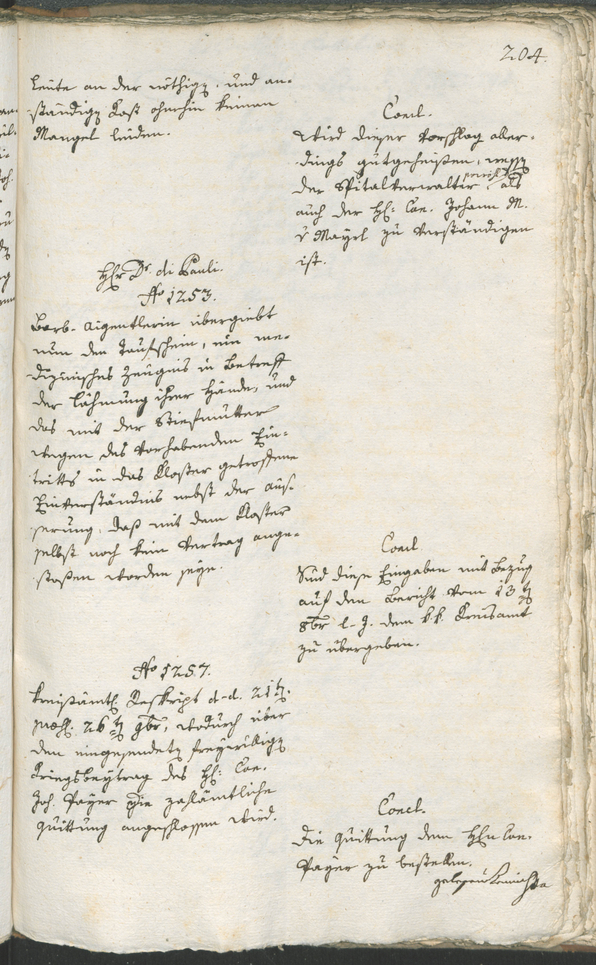 204.
leute an der nöthign, und an-
ständign Kost ohnehin keinen
Mangel leiden.
Concl.
Wird dieser Vorschlag aller-
dings gutgeheißen, wessn
der Spitalverwalter sowohl als
auch der H: Con. Johann M.
v Mayrl zu verständigen
ist.
Hhr Dr. di Pauli.
No 1253.
Barb. Aigentlerin übergiebt
nun den Taufschein, ein me-
dizinisches Zeugnis in Betreff
der Lähmung ihrer Hände, und
das mit der Stiefmutter
wegen des vorhabenden Ein-
tritts in das Kloster getroffene
Einverständnis nebst der äus-
serung, daß mit dem Kloster
selbst noch kein Vertrag ange-
stoßen worden seye.
Concl
Sind diese Eingaben mit Bezug
auf den Bericht vom 13tn
8br l. J. dem k.k. Kreisamt
zu übergeben.
No 1257.
Kreisämtl. Reskript d-d. 21tn.
præs. 26tn 9br, wodurch über
den eingesendetn freywillign
Kriegsbeytrag des H: Con.
Joh. Payer die zahlämtliche
Quittung angeschlossen wird.
Concl.
Die Quittung dem Hhn Con.
Payer zu bestellen.
gelesen